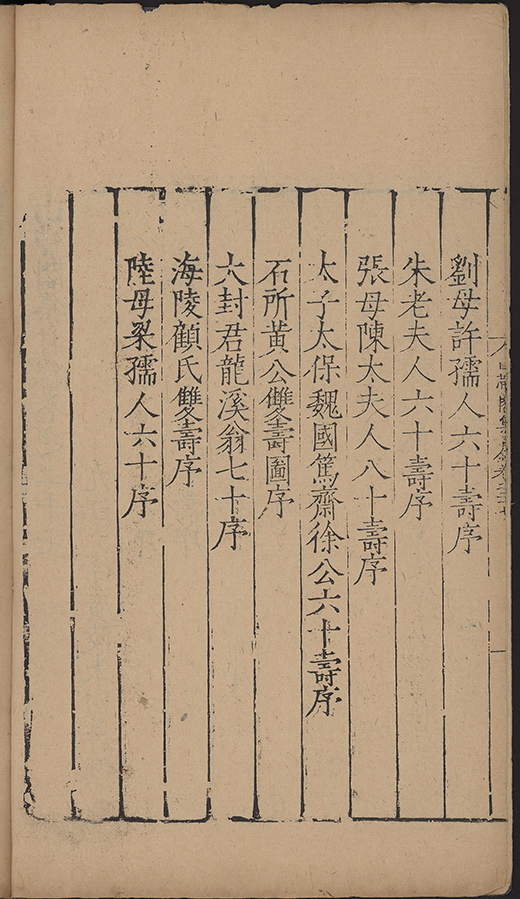 劉母許孺人六十壽序
朱老夫人六十壽序
張母陳太夫人八十壽序
太子太保魏國篤齋徐公六十壽序
石所黃公雙壽圖序
大封君龍溪翁七十序
海陵顧氏雙壽序
陸母梁孺人六十序